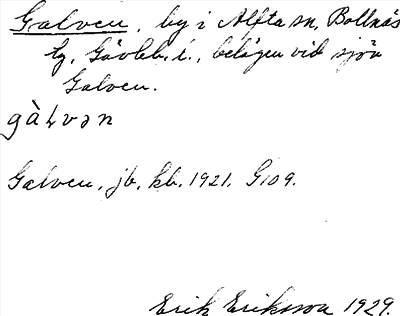 Galven, by i Alfta sn, Bollnäs
tg, Gävleb. l., belägen vid sjön
Galven.
gàlvən
Galven, jb, kb. 1921. G109.
Erik Eriksson 1929.